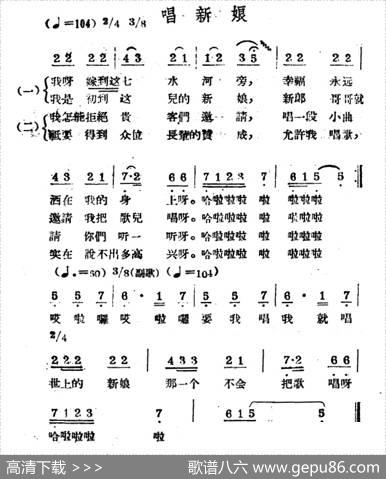 (♩=104) 2/4 3/8 唱新娘
2̇2̇ 2̇2̇ | 4̇3̇ 2̇1̇ | 1̇2̇ 3̇5 | 2̇2̇ 2̇2̇
(一) 我呀 嫁到这七 水河 旁， 幸福 永远
我是 初到这 兒的新 娘， 新郎 哥哥就
(二) 我怎能拒絕 貴 客們邀 請， 唱一段 小曲
祗要 得到 众位 長輩的贊 成， 允許我 唱歌，
4̇3̇ 2̇1̇ | 7·2̇ 66 | 7123 7 | 615 5
洒在 我的 身 上呀。哈啦啦啦 啦 啦啦啦 啦
邀請 我把 歌兒 唱呀。哈啦啦啦 啦 啦啦啦 啦
請 你們 听一 听呀。哈啦啦啦 啦 啦啦啦 啦
实在 說不出多高 兴呀。哈啦啦啦 啦 啦啦啦 啦
(♩.=60) 3/8(副歌) (♩=104)
5 5 7 | 6· 1 7 | 5 5 7 | 6· 1 7
哎 啦 囉 哎 啦 囉 要 我 唱 我 就 唱
2/4
222 22 | 433 21 | 7·2 66
世上的 新娘 那一个 不会 把歌 唱呀
7123 7 | 615 5
哈啦啦啦 啦
高清下载 >>> 歌谱八六 www.gepu86.com